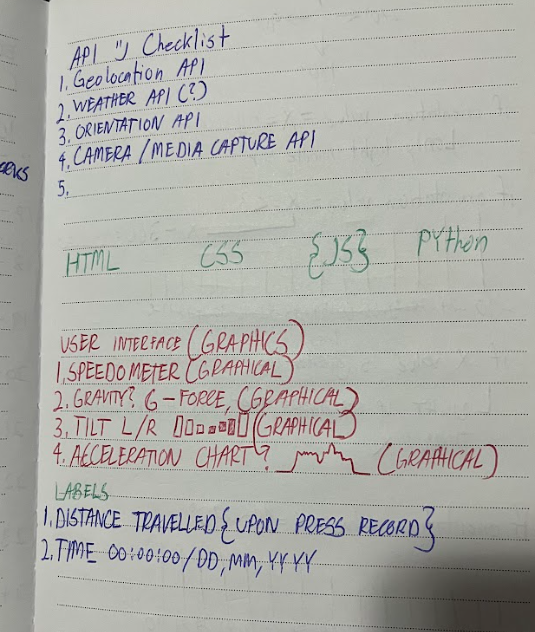 API "J Checklist
1. Geolocation API
2. WEATHER API (?)
3. ORIENTATION API
4. CAMERA / MEDIA CAPTURE API
5.
HTML CSS {JS} PYthon
USER INTERFACE (GRAPHICS)
1. SPEEDOMETER (GRAPHICAL)
2. GRAVITY? G-FORCE, (GRAPHICAL)
3. TILT L/R (GRAPHICAL)
4. ACCELERATION CHART? (GRAPHICAL)
LABELS
1. DISTANCE TRAVELLED { UPON PRESS RECORD }
2. TIME 00:00:00/DD,MM,YYYY